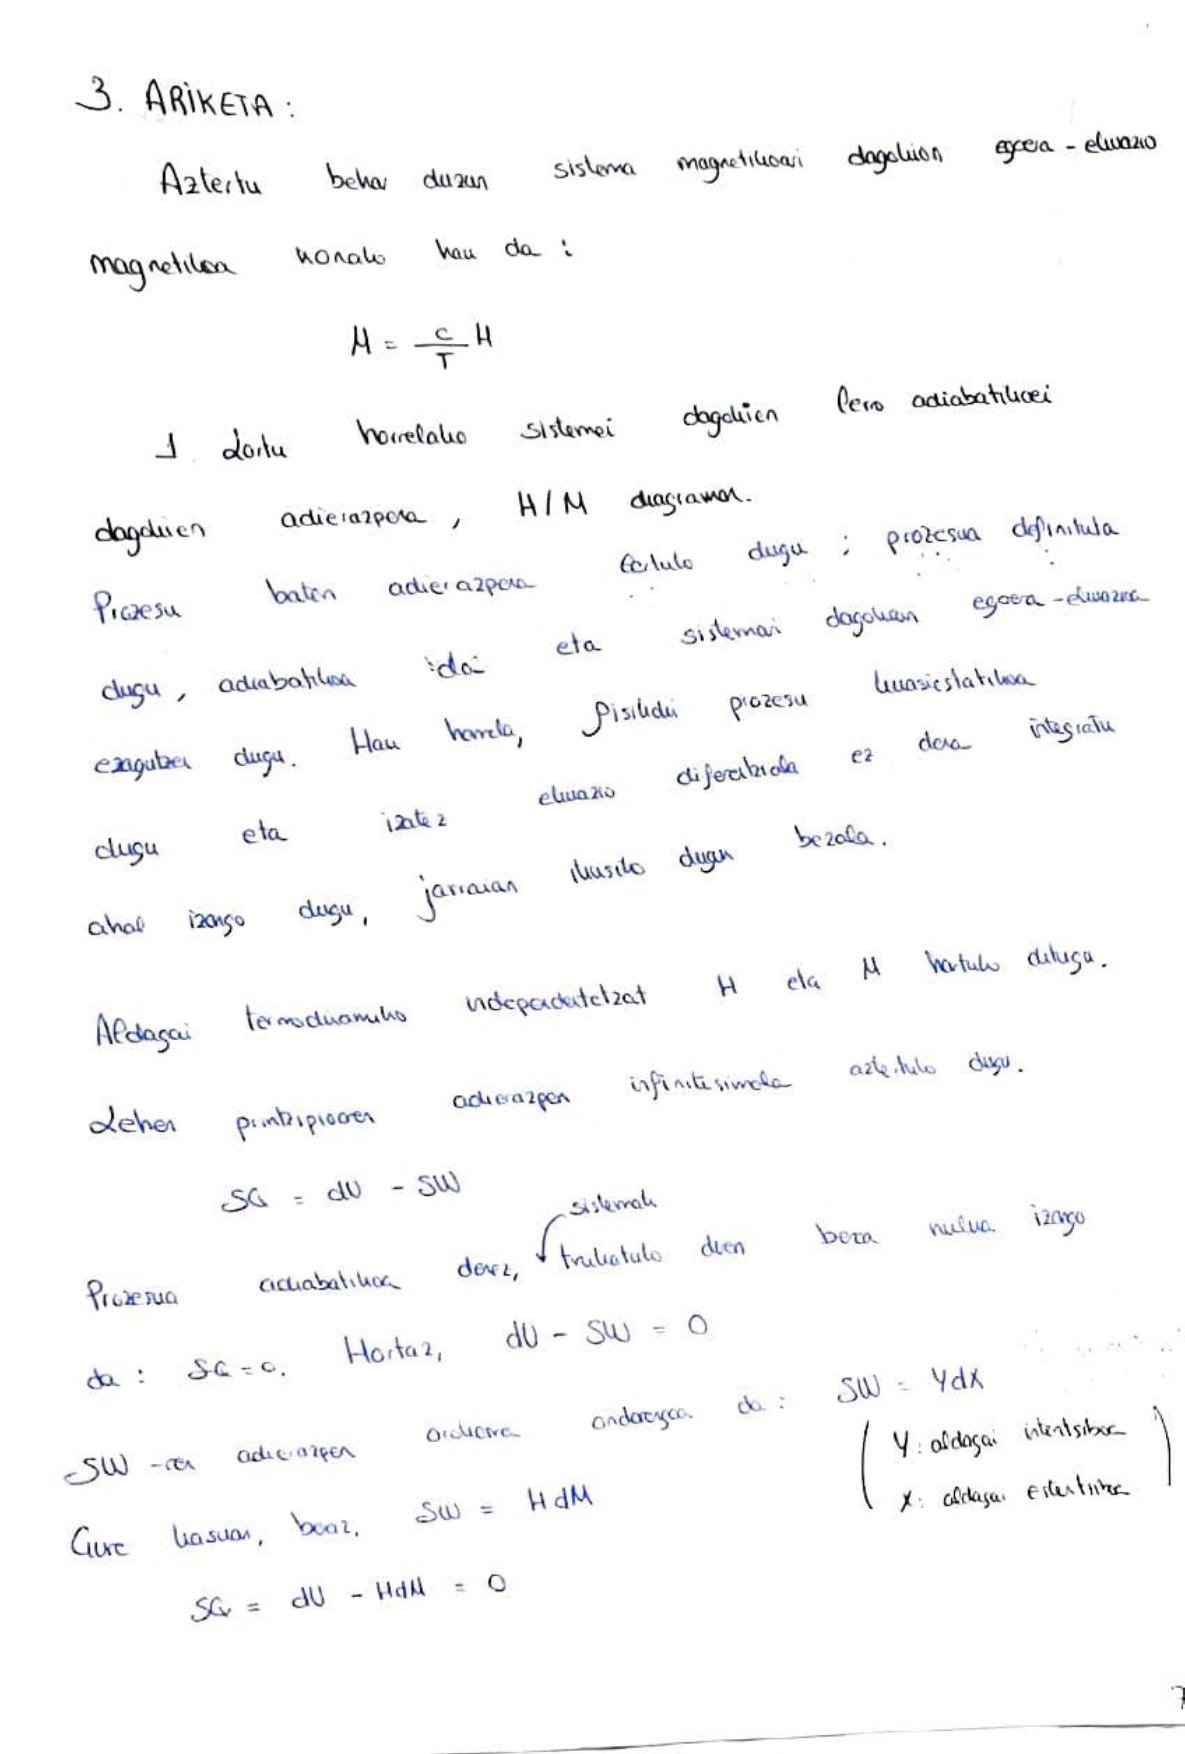 3. ARIKETA :
Aztertu behar duzun sistema magnetikoari dagokion egoera-ekuazio
magnetikoa honako hau da :
M = C/T H
1 Lortu horrelako sistemei dagokien lerro adiabatikoei
dagokien adierazpena, H/M diagraman.
Prozesu baten adierazpena lortuko dugu ; prozesua definituta
dugu, adiabatikoa da eta sistemari dagokion egoera-ekuazioa
ezagutzen dugu. Hau horrela, fisikoki prozesu kuasiestatikoa
dugu eta izatez ekuazio diferentziala ez dena integratu
ahal izango dugu, jarraian ikusiko dugun bezala.
Aldagai termodinamiko independentetzat H eta M hartuko ditugu.
Lehen printzipioaren adierazpen infinitesimala aztertuko dugu.
δQ = dU - δW
Prozesua adiabatikoa denez, sistemak trukatuko duen beroa nulua izango
da : δQ = 0. Hortaz, dU - δW = 0
δW-ren adierazpen orokorra ondorengoa da : δW = YdX
( Y : aldagai intentsiboa
X : aldagai estentsiboa )
Gure kasuan, beraz, δW = HdM
δQ = dU - HdM = 0
7